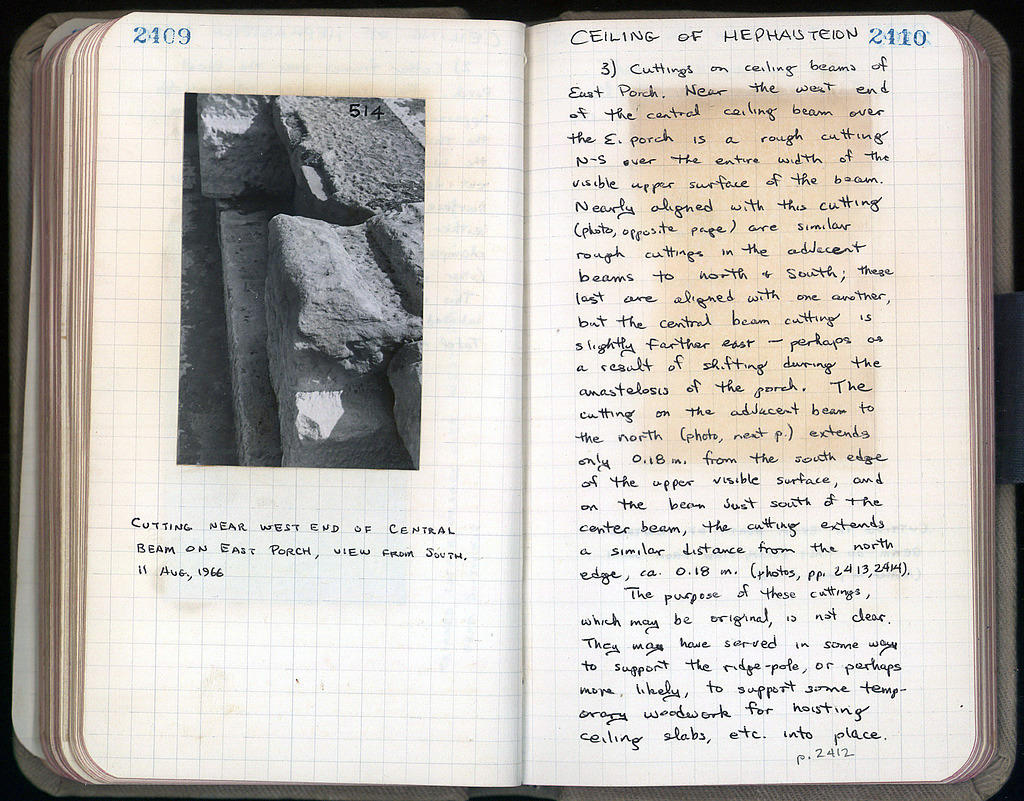 2409
514
CUTTING NEAR WEST END OF CENTRAL
BEAM ON EAST PORCH, VIEW FROM SOUTH.
11 AUG, 1966
CEILING OF HEPHAISTEION 2410
3) Cuttings on ceiling beams of
East Porch. Near the west end
of the central ceiling beam over
the E. porch is a rough cutting
N-S over the entire width of the
visible upper surface of the beam.
Nearly aligned with this cutting
(photo, opposite page) are similar
rough cuttings in the adjacent
beams to north & south; these
last are aligned with one another,
but the central beam cutting is
slightly farther east — perhaps as
a result of shifting during the
anastelosis of the porch. The
cutting on the adjacent beam to
the north (photo, next p.) extends
only 0.18 m. from the south edge
of the upper visible surface, and
on the beam just south of the
center beam, the cutting extends
a similar distance from the north
edge, ca. 0.18 m. (photos, pp. 2413, 2414).
The purpose of these cuttings,
which may be original, is not clear.
They may have served in some way
to support the ridge-pole, or perhaps
more likely, to support some temp-
orary woodwork for hoisting
ceiling slabs, etc. into place.
p. 2412